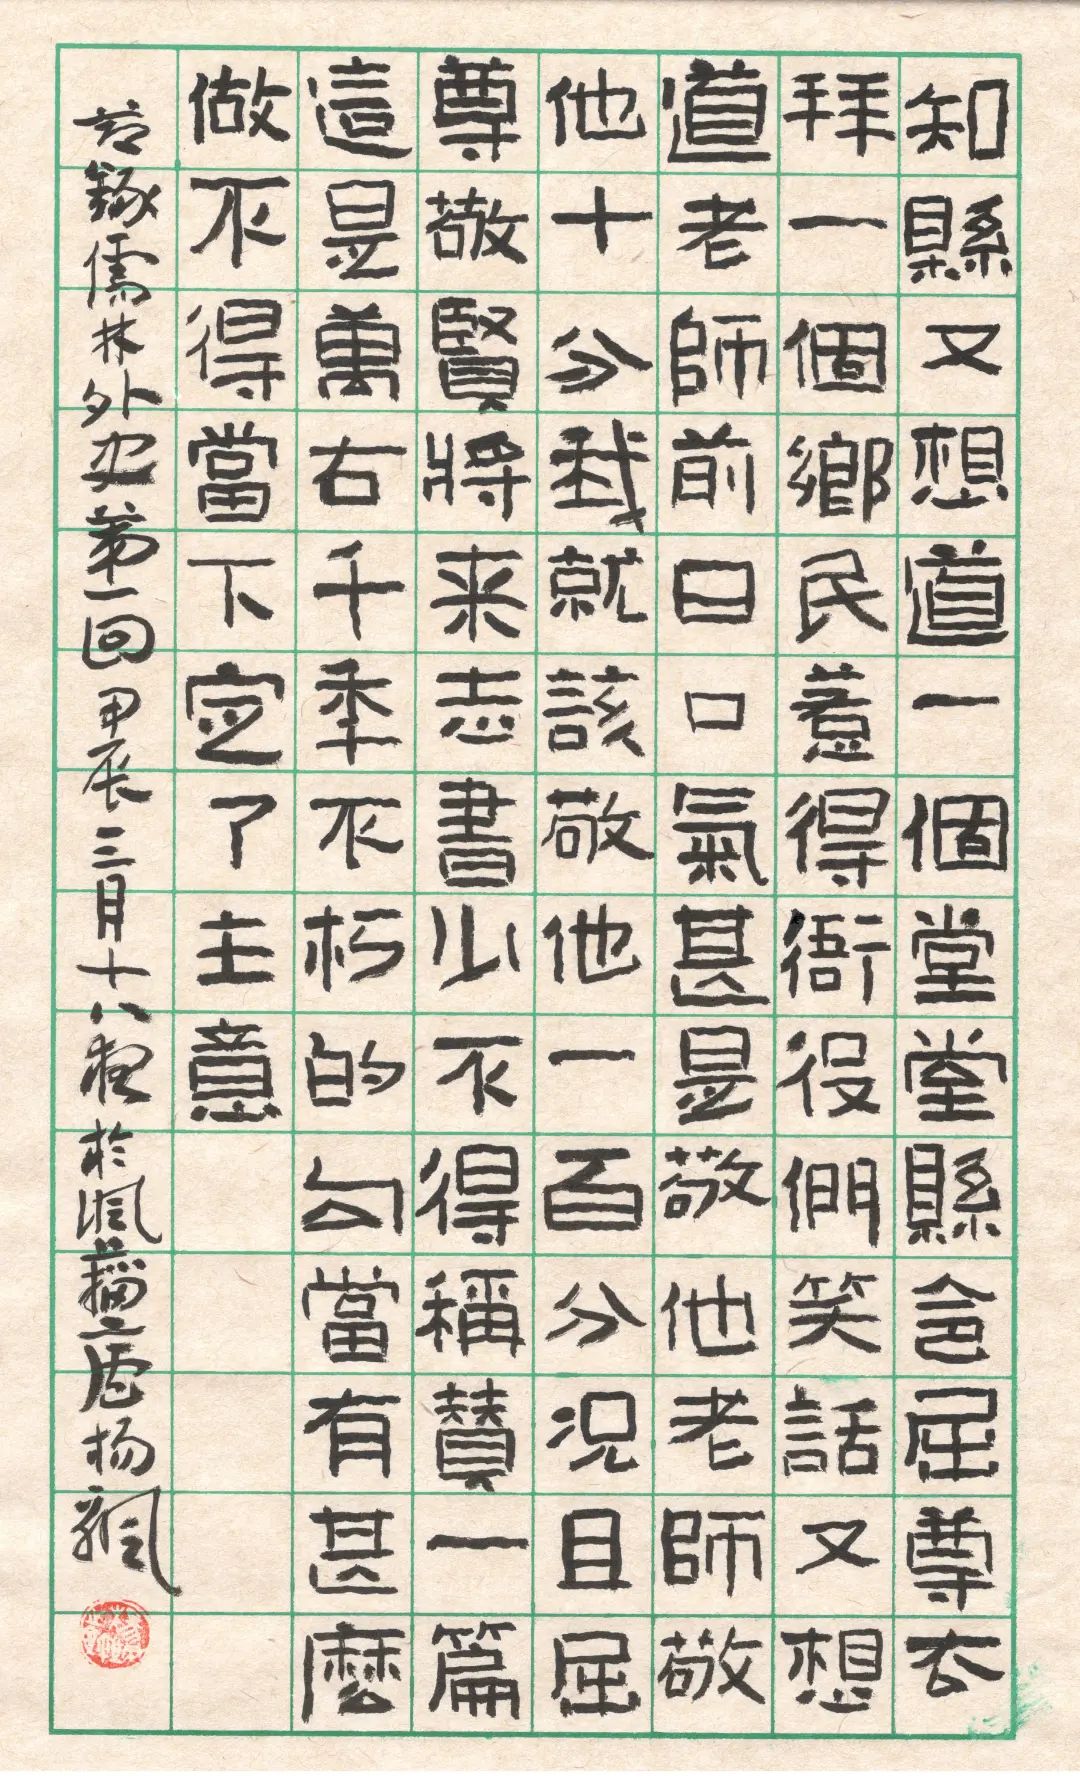 知縣又想道一個堂堂縣令屈尊去
拜一個鄉民惹得衙役們笑話又想
道老師前日口氣甚是敬他老師敬
他十分我就該敬他一百分況且屈
尊敬賢將來志書少不得稱贊一篇
這是萬古千年不朽的勾當有甚麼
做不得當下定了主意
節錄儒林外史第一回甲辰三月十八夜於
楊